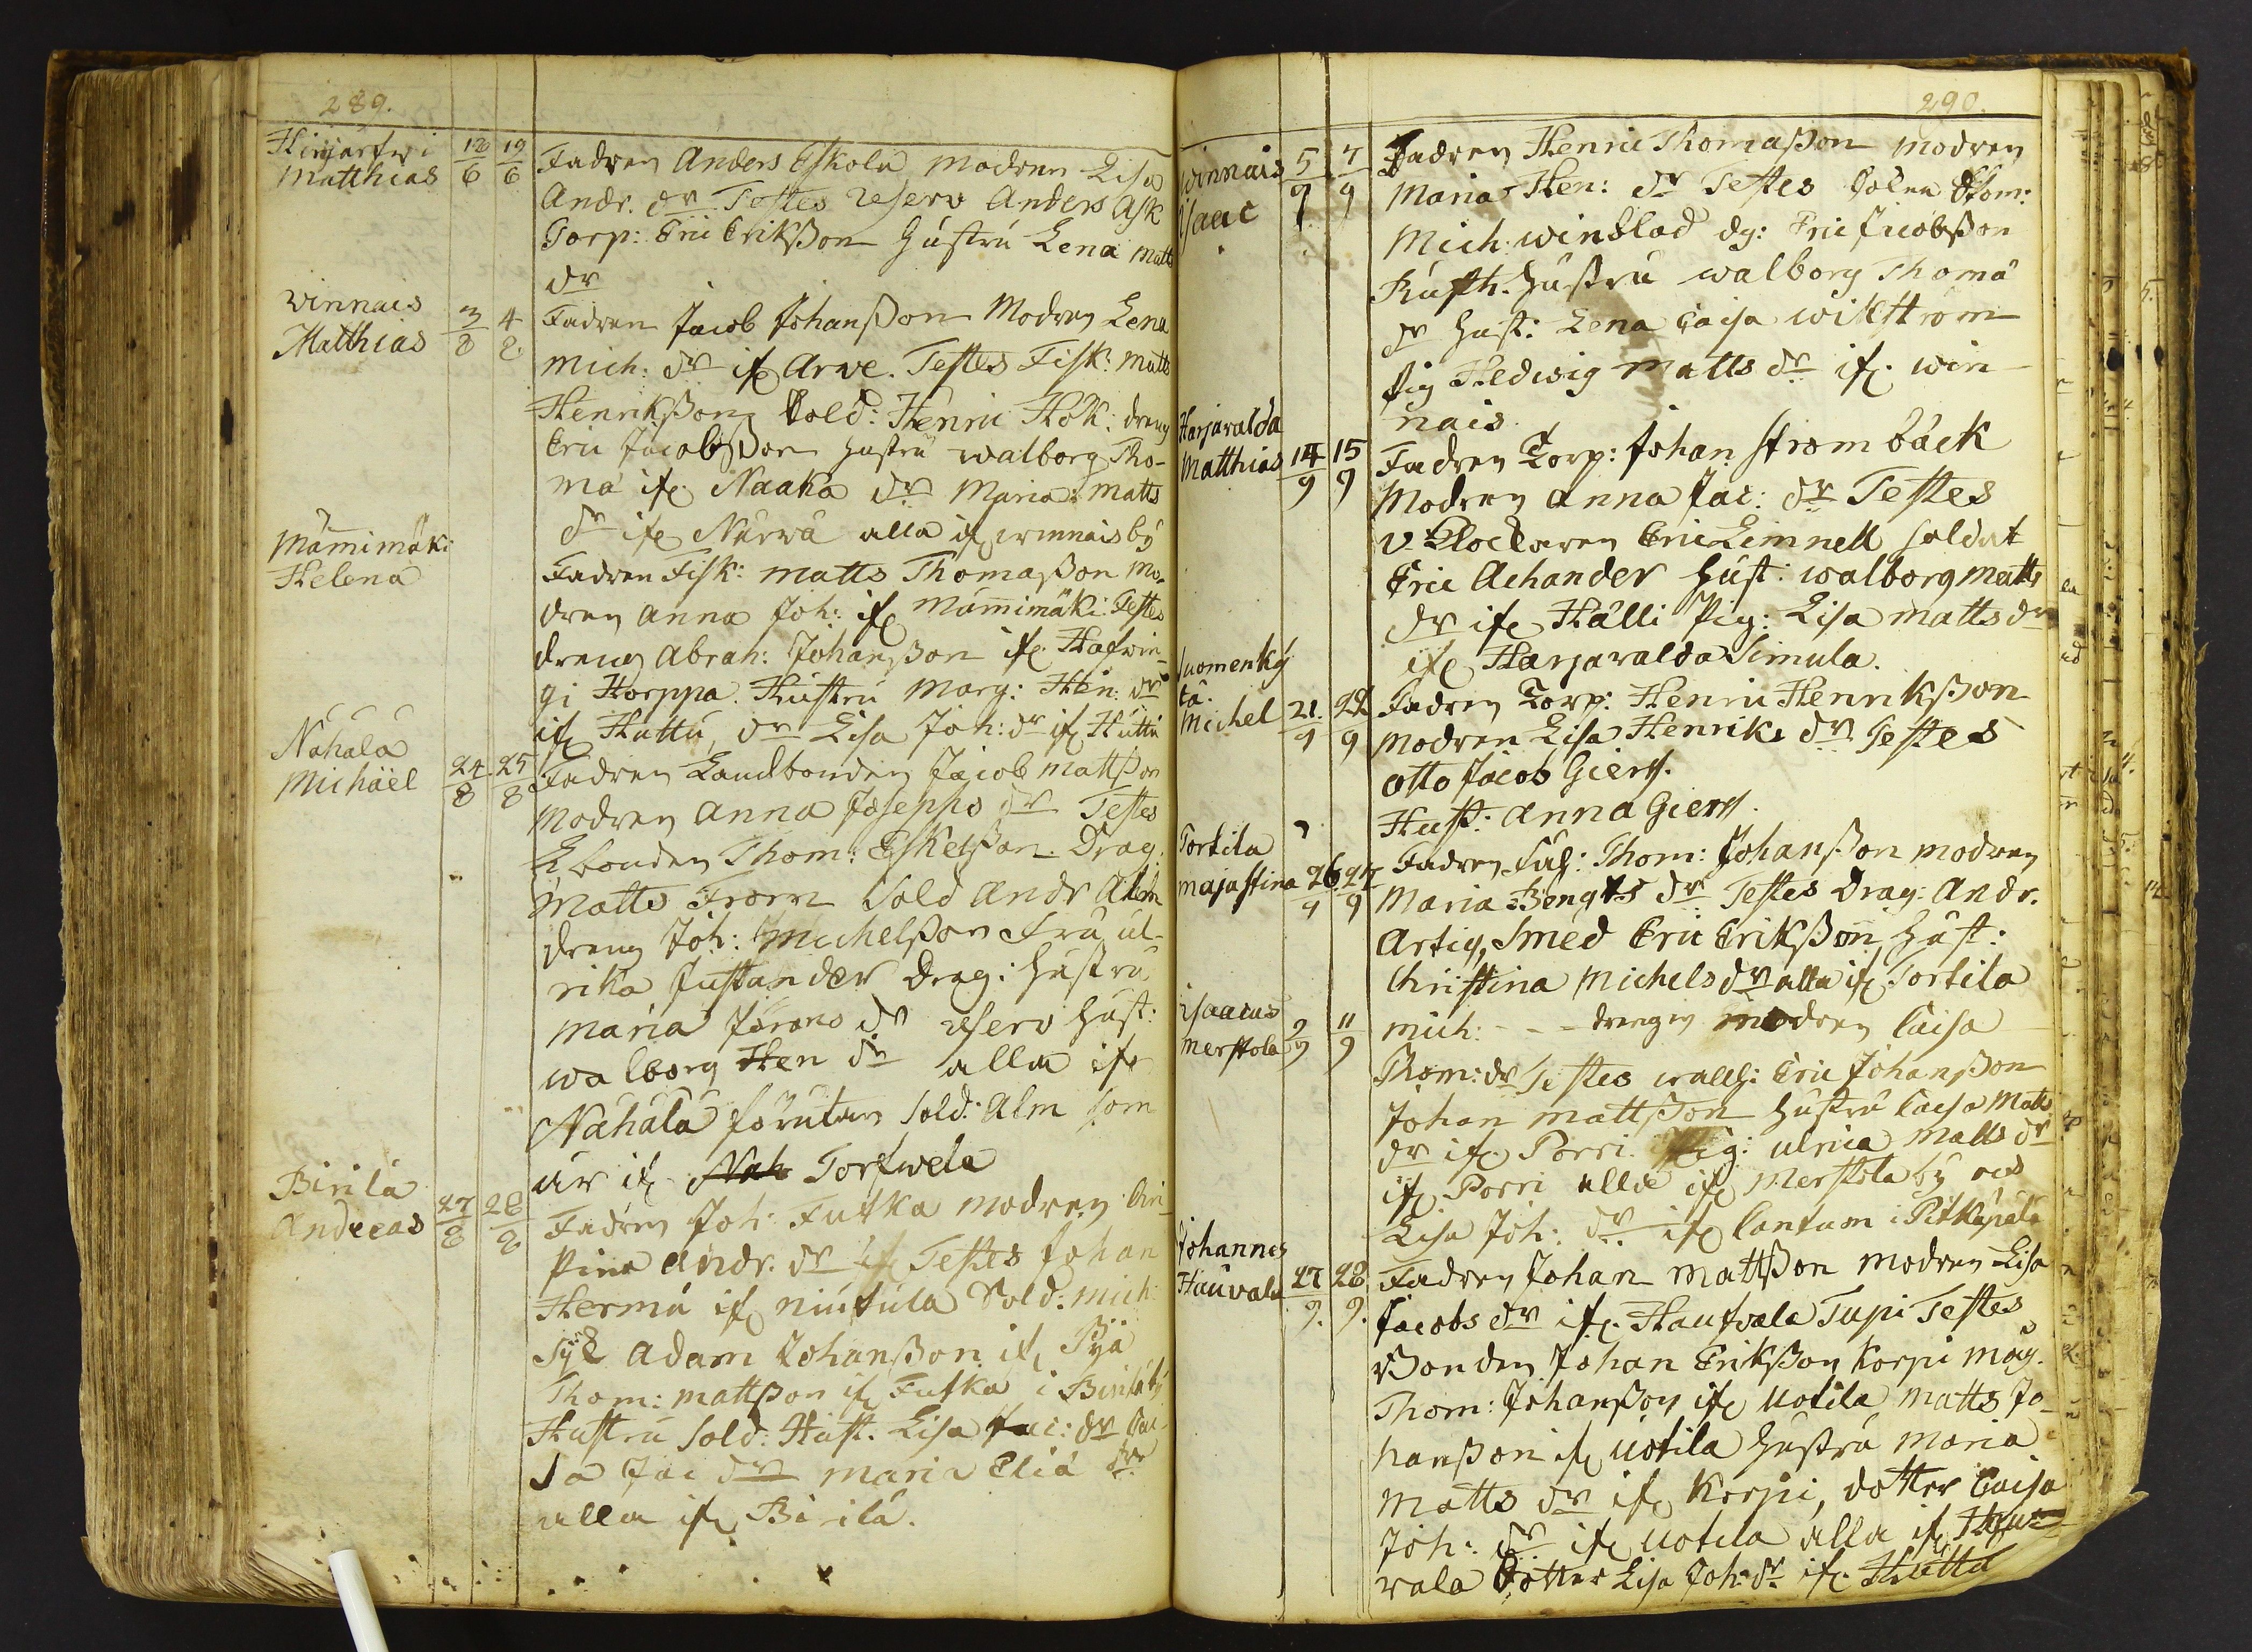 289.
Hinjärfwi
Matthias 12/6 19/6
Fadren Anders Eskola modren Lisa
Andr. dr Testes Reserv Anders Ask
Torp: Eric Eriksson hustru Lena Matts
dr
Winnais
Matthias 3/8 4/8
Fadren Jacob Johansson Modren Lena
Mich: dr if. Arve. Testes Fisk: Matts
Henriksson Sold: Henric Hök: dreng
Eric Jacobsson hustru Walborg Tho-
mä if. Naaka dr Maria Matts
dr if. Närwä alla if. winnais by
Mämimäki
Helena
Fadren Fisk: Matts Thomasson Mo-
dren Anna Joh: if. Mämimäki Testes
dreng Abrah: Johansson if. Hafwin-
gi Korppa. Hustru Marg: Hen: dr
if. Huttu, dr Lisa Joh: dr if. Huttu
Nahala
Michäel 24/8 25/8
Fadren Landbonden Jacob Mattsson
Modren Anna Josephs dr Testes
Lbonden Thom: Eskelsson. Drag.
Matts From Sold Andr Alm
dreng Joh: Michelsson Fru Ul-
rika Justander Drag: hustru
Maria Jörans dr Reserv hust:
Walborg Hen dr alla if
Nahala förutan Sold: Alm som
är if. Nah Torfwela
Birila
Andreas 27/8 28/8
Fadren Joh: Futka modren Chri-
stina Andr. dr if. Testes Johan
Hermä if. niutula Sold: Mich:
Syl Adam Johansson if. Pyä
Thom: Mattsson if. Futka i Birila by
Hustru Sold: Hust. Lisa Jac: dr Cai-
sa Jac dr Maria Eliä dr
alla if. Birilä.
290.
Winnais
Isaac 5/9 7/9
Fadren Henric Thomasson modren
Maria Hen: dr Testes Thom:
Mich: Winblad dg: Eric Jacobsson
Rusth. hustru Walborg Thomä
dr hust: Lena Caisa Wikström
Pig Hedwig Matts dr if. Win-
nais.
Harjavalda
Matthias 14/9 15/9
Fadren Torp: Johan Strömbäck
Modren Anna Jac: dr Testes
V. Klockaren Eric Limnell Soldat
Eric Achander hust: Walborg Matts
dr if. Hälli Pig: Lisa Matts dr
if. Harjavalda Simula.
Suomenky
lä.
Michel 21/9 22/9
Fadren Torp: Henric Henriksson
Modren Lisa Henriks dr. Testes
Otto Jacob Giers.
Hust: Anna Giers.
Torttila
Maja Stina 26/9 27/9
Fadren Thom: Johansson modren
Maria Bengts dr Testes Drag: Andr.
Artig, Smed Eric Eriksson, hust:
Christina Michels dr alla if. Torttila
Isaacus
Merstola 9/9 11/9
Mich: - - - drengen modren Caisa
Thom: dr Testes Eric Johansson
Johan Mattsson hustru Caisa Matts
dr if. Porri. Pig: Ulrica Matts dr
if. Porri alla if. Merstola by och
Lisa Joh: dr if. Cantum i Pitkäpälä
Johannes
Hauvala 27/9. 28/9.
Fadren Johan Mattsson modren Lisa
Jacobs dr if. Haufvala Tupi Testes
Bonden Johan Eriksson Korpi Måg.
Thom: Johansson if. Uotila Matts Jo-
hansson if. Uotila hustru Maria
Matts dr if. Korpi, dotter Caisa
Joh: dr if. Uotila alla if. Hau-
vala Dotter Lisa Joh: dr if. Huttu